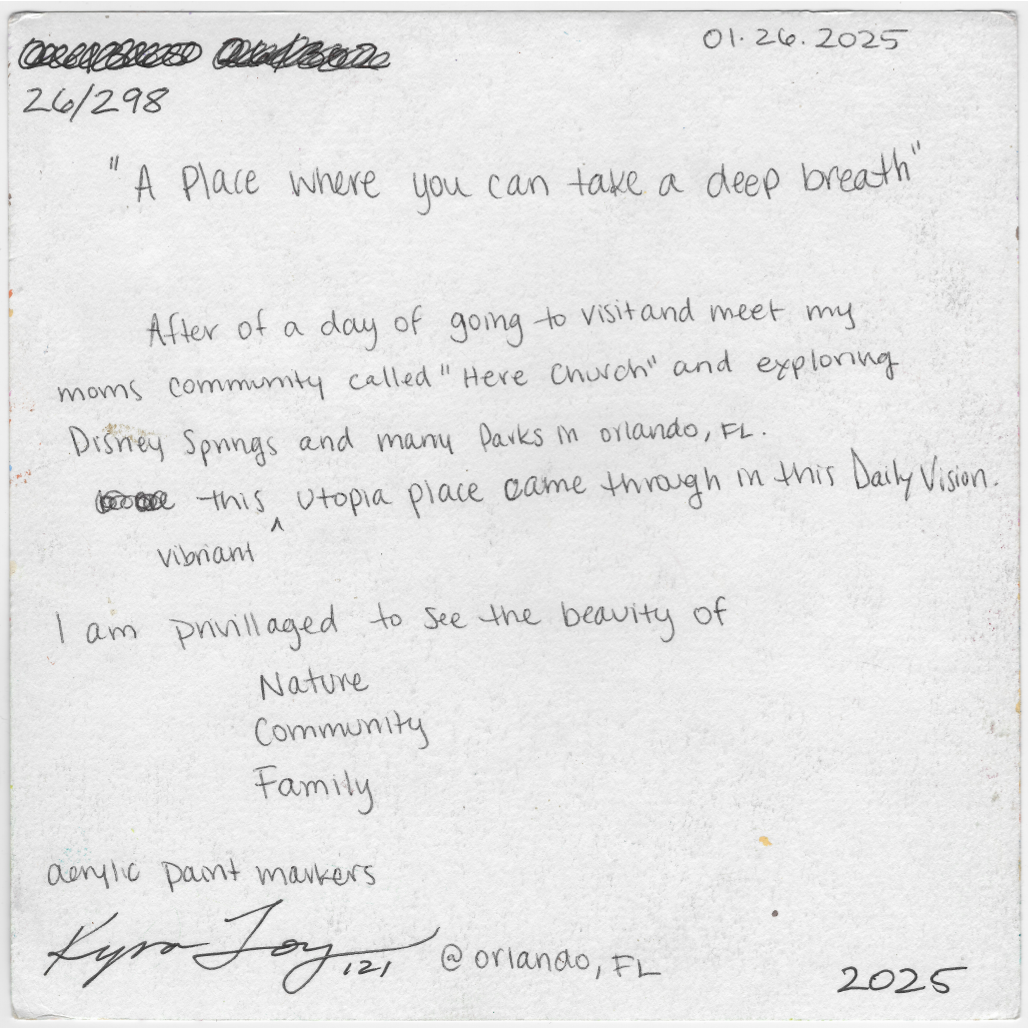 01.26.2025
26/298
"A Place where you can take a deep breath"
After of a day of going to visit and meet my
moms community called "Here Church" and exploring
Disney Springs and many Parks in orlando, FL.
this ^ utopia place came through in this Daily Vision.
vibriant
I am privillaged to see the beauity of
Nature
Community
Family
acrylic paint markers
Kyra Joy 121 @orlando, FL
2025